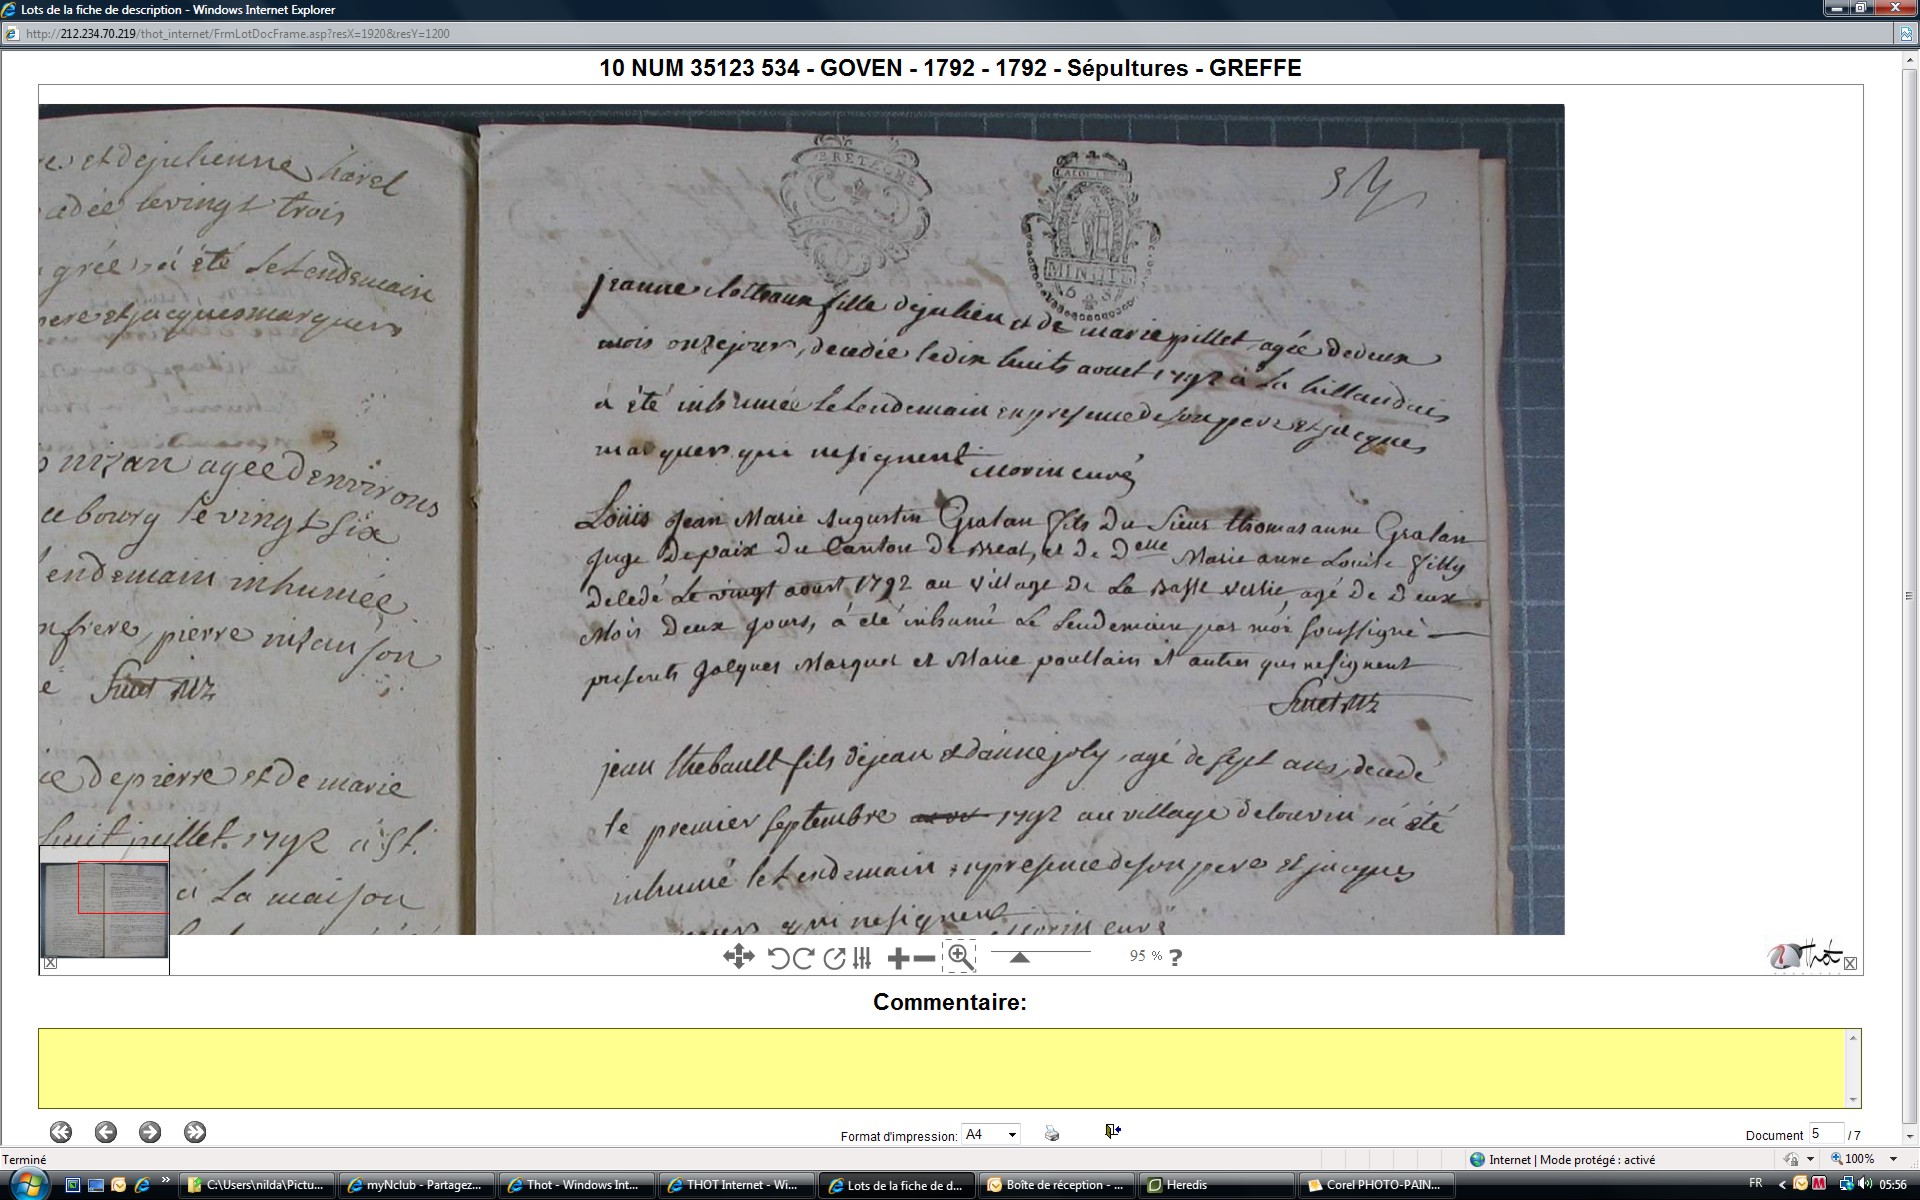 Lots de la fiche de description - Windows Internet Explorer
http://212.234.70.219/thot_internet/FrmLotDocFrame.asp?resX=1920&resY=1200
10 NUM 35123 534 - GOVEN - 1792 - 1792 - Sépultures - GREFFE
et de julienne harel
cedée le vingt trois
grée, a été le lendemain
pere et jacques marquer
nizan agée d'environs
ce bourg le vingt six
lendemain inhumée
pierre nizan son
de pierre et de marie
huit juillet 1792 à St.
à la maison
BRETAGNE
MINUTE
jeanne fille de julien et de marie pillet agée de deux
mois onze jours, decedée le dix huit aouet 1792 à la hillandais
à été inhumée le lendemain en presence de son pere et jacques
marquer qui ne signent Morin curé
Louis Jean Marie Augustin Gralan fils du Sieur thomas anne Gralan
juge de paix du Canton de Breal, et de Delle Marie anne Louise filly
decedé le vingt aoust 1792 au village de la Basse agé de Deux
Mois Deux jours, à été inhumé le Lendemain par moi soussigné
presents Jacques Marquer et Marie poullain et autres qui ne signent
jean thebault fils de jean et d'anne joly, agé de sept ans, decedé
le premier septembre 1792 au village de louvin, a été
inhumé le lendemain en presence de son pere et jacques
qui ne signent Morin curé
95 % ?
Thot
Commentaire:
Format d'impression: A4
Document 5 / 7
Terminé
Internet | Mode protégé : activé
100%
C:\Users\nilda\Pictu...
myNclub - Partagez...
Thot - Windows Int...
THOT Internet - Wi...
Lots de la fiche de d...
Boîte de réception - ...
Heredis
Corel PHOTO-PAIN...
FR
05:56